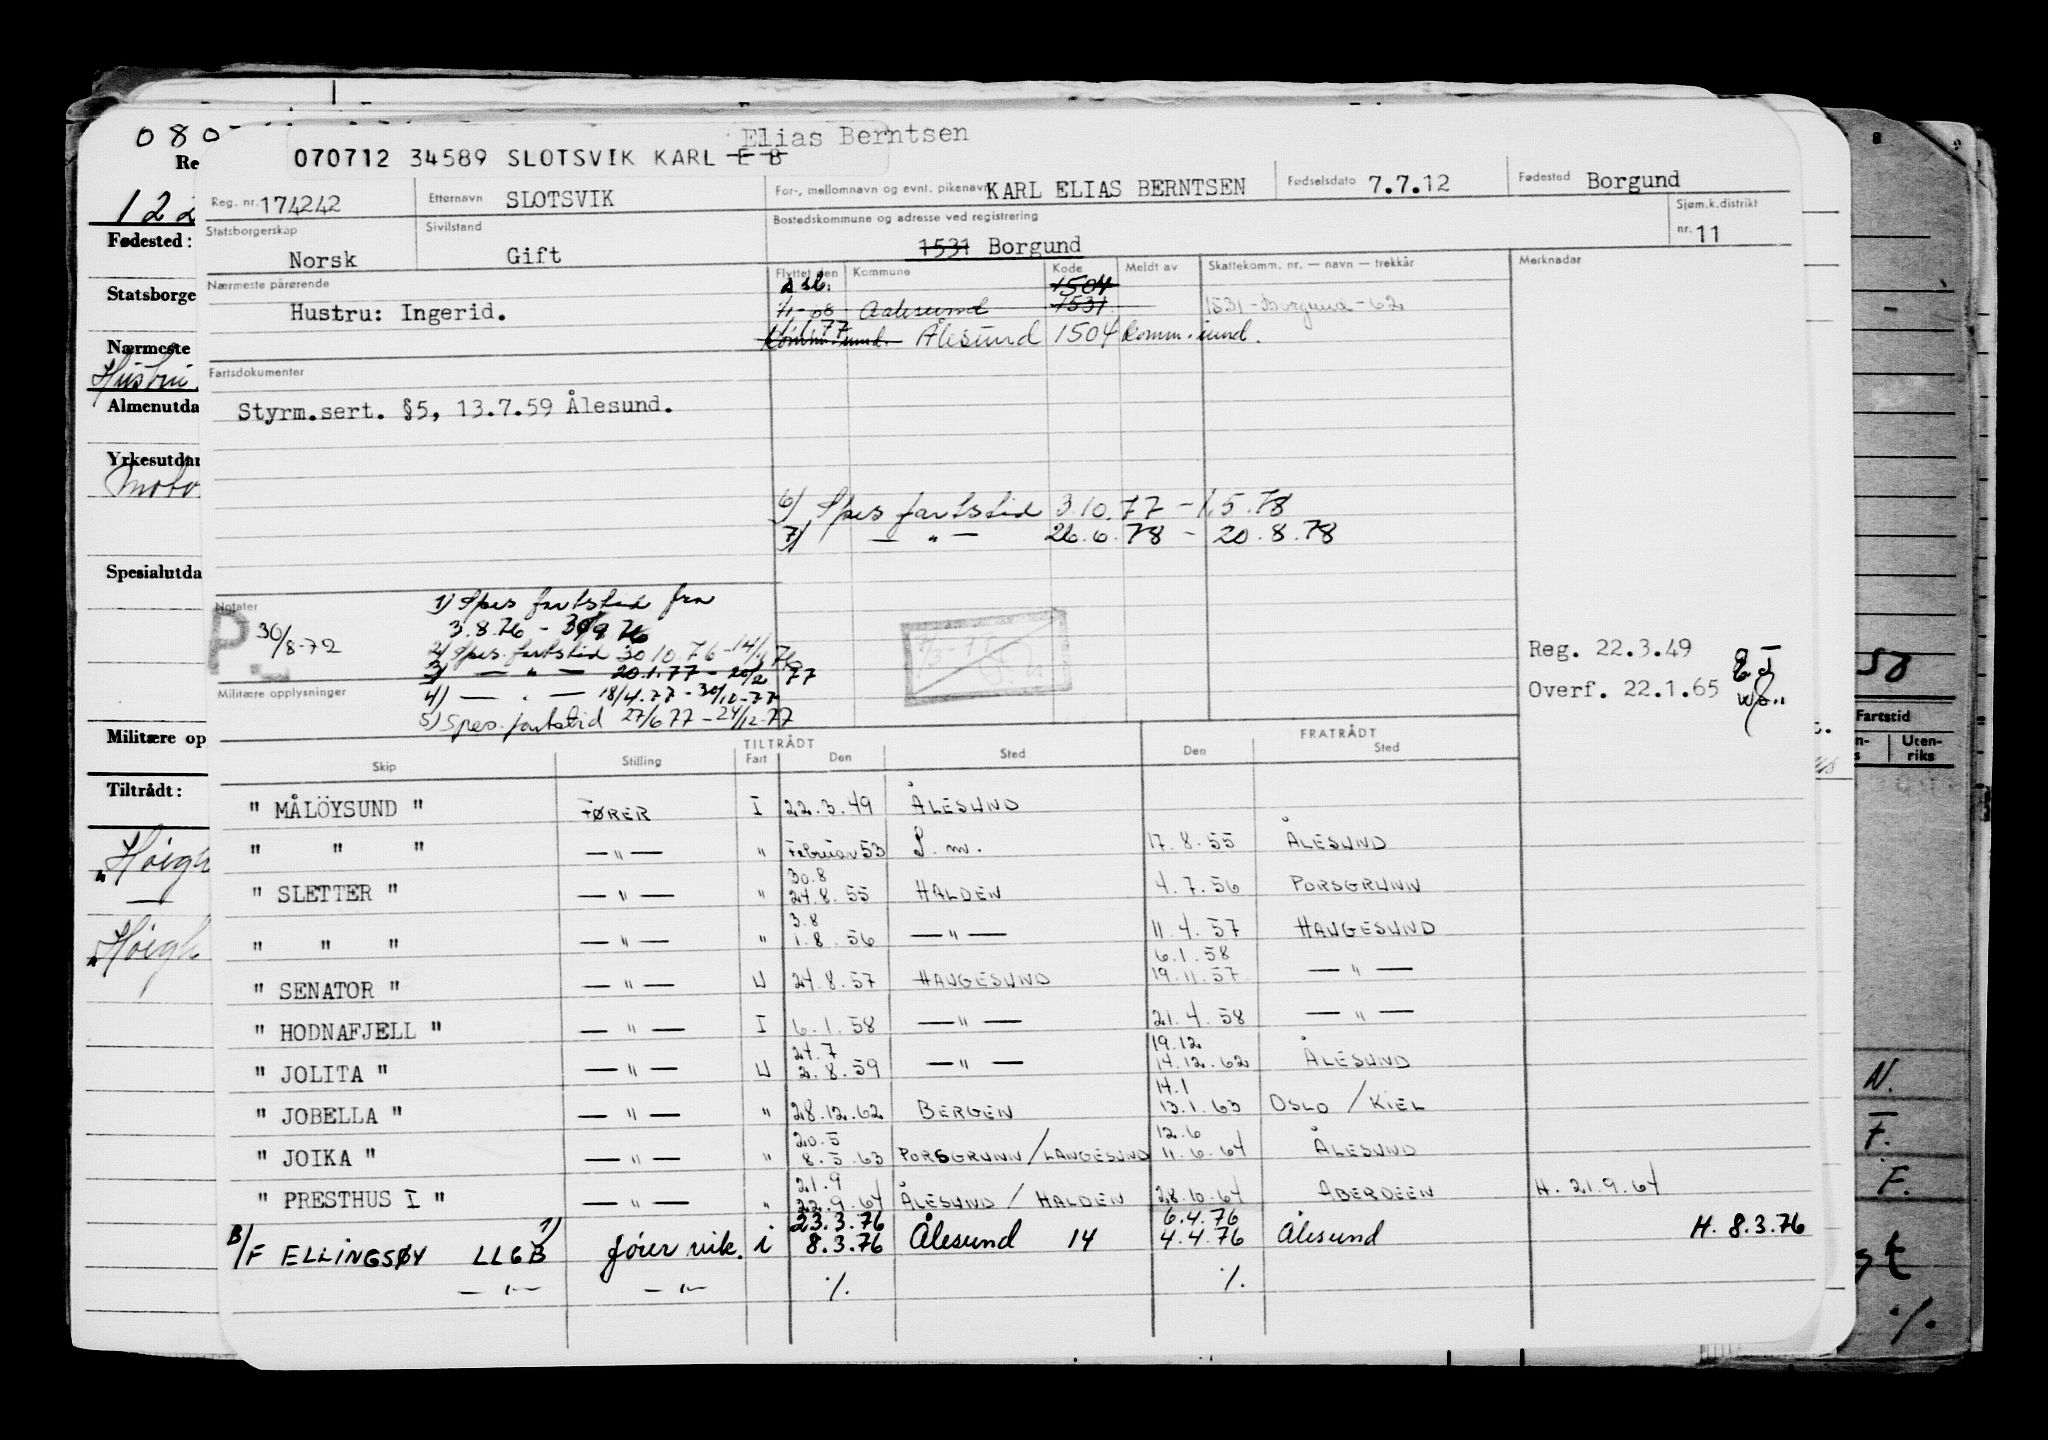 080
Elias Berntsen
070712 34589 SLOTSVIK KARL E B
Reg. nr. 174242 Etternavn SLOTSVIK For-, mellomnavn og evnt. pikenavn KARL ELIAS BERNTSEN Fødselsdato 7.7.12 Fødested Borgund
Statsborgerskap Norsk Sivilstand Gift Bostedskommune og adresse ved registrering 1531 Borgund Sjøm.k.distrikt nr. 11
Nærmeste pårørende Flyttet den Kommune Kode Meldt av Skattekomm. nr. — navn — trekkår Merknader
1504
Hustru: Ingerid. Aalesund 1531 1531-Borgund-62
Ålesund 1504 komm.
Fartsdokumenter
Styrm.sert. §5, 13.7.59 Ålesund.
6) Spes fartstid 3.10.77 - 1.5.78
7) — " — 26.6.78 - 20.8.78
Notater
P. 30/8-72
1) Spes fartstid fra
3.8.76 - 30/9 76
2) Spes. fartstid 30.10.76 -
3) — " — 20.1.77 - 20/2 77
4) — " — 18/4.77 - 30/10-77
5) Spes. fartstid 27/6 77 - 24/12-77
Militære opplysninger
Reg. 22.3.49
Overf. 22.1.65
TILTRÅDT FRATRÅDT
Skip Stilling Fart Den Sted Den Sted
" MÅLÖYSUND " FØRER I 22.3.49 ÅLESUND
" " " — " — " Februar 53 S. m. 17.8.55 ÅLESUND
30.8
" SLETTER " — " — " 24.8.55 HALDEN 4.7.56 PORSGRUNN
3.8
" " " — " — " 1.8.56 — " — 11.4.57 HAUGESUND
6.1.58
" SENATOR " — " — U 24.8.57 HAUGESUND 19.11.57 — " —
" HODNAFJELL " — " — I 6.1.58 — " — 21.4.58 — " —
24.7 19.12
" JOLITA " — " — U 2.8.59 — " — 14.12.62 ÅLESUND
14.1
" JOBELLA " — " — " 28.12.62 BERGEN 13.1.63 OSLO / KIEL
20.5 12.6
" JOIKA " — " — " 8.5.63 PORSGRUNN / LANGESUND 11.6.64 ÅLESUND
21.9
" PRESTHUS I " — " — " 22.9.64 ÅLESUND / HALDEN 28.10.64 ABERDEEN H. 21.9.64
23.3.76 6.4.76
B/F ELLINGSØY LLGB 1) fører vik. i 8.3.76 Ålesund 14 4.4.76 Ålesund H. 8.3.76
— " — — " — ·/. ·/.
122
Fødested:
Statsborge
Nærmeste
Hustru
Almenutda
Yrkesutdan
Moto
Spesialutda
Militære op
Tiltrådt:
Høigh
Høigh
8
50
Fartstid
Uten-
riks
N.
F.
F.
·/.